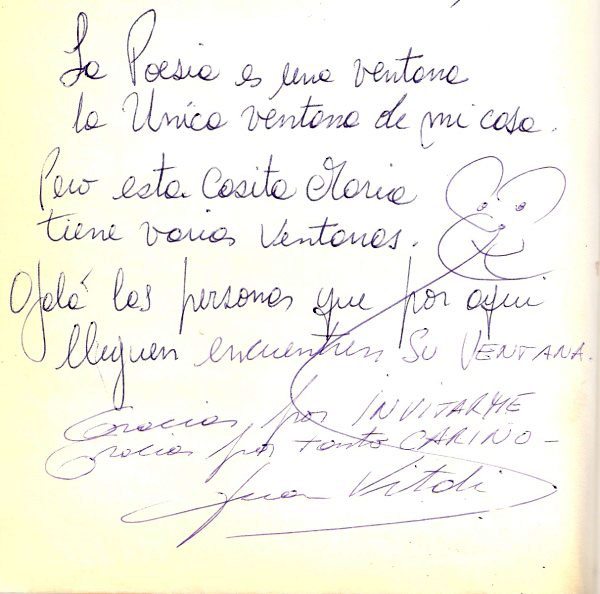 La Poesia es una ventana
la Unica ventana de mi casa.
Pero esta Casita Maria
tiene varias Ventanas.
Ojalá las personas que por aqui
lleguen encuentren SU VENTANA.
Gracias por INVITARME
Gracias por tanto CARIÑO -
Juan Vitali